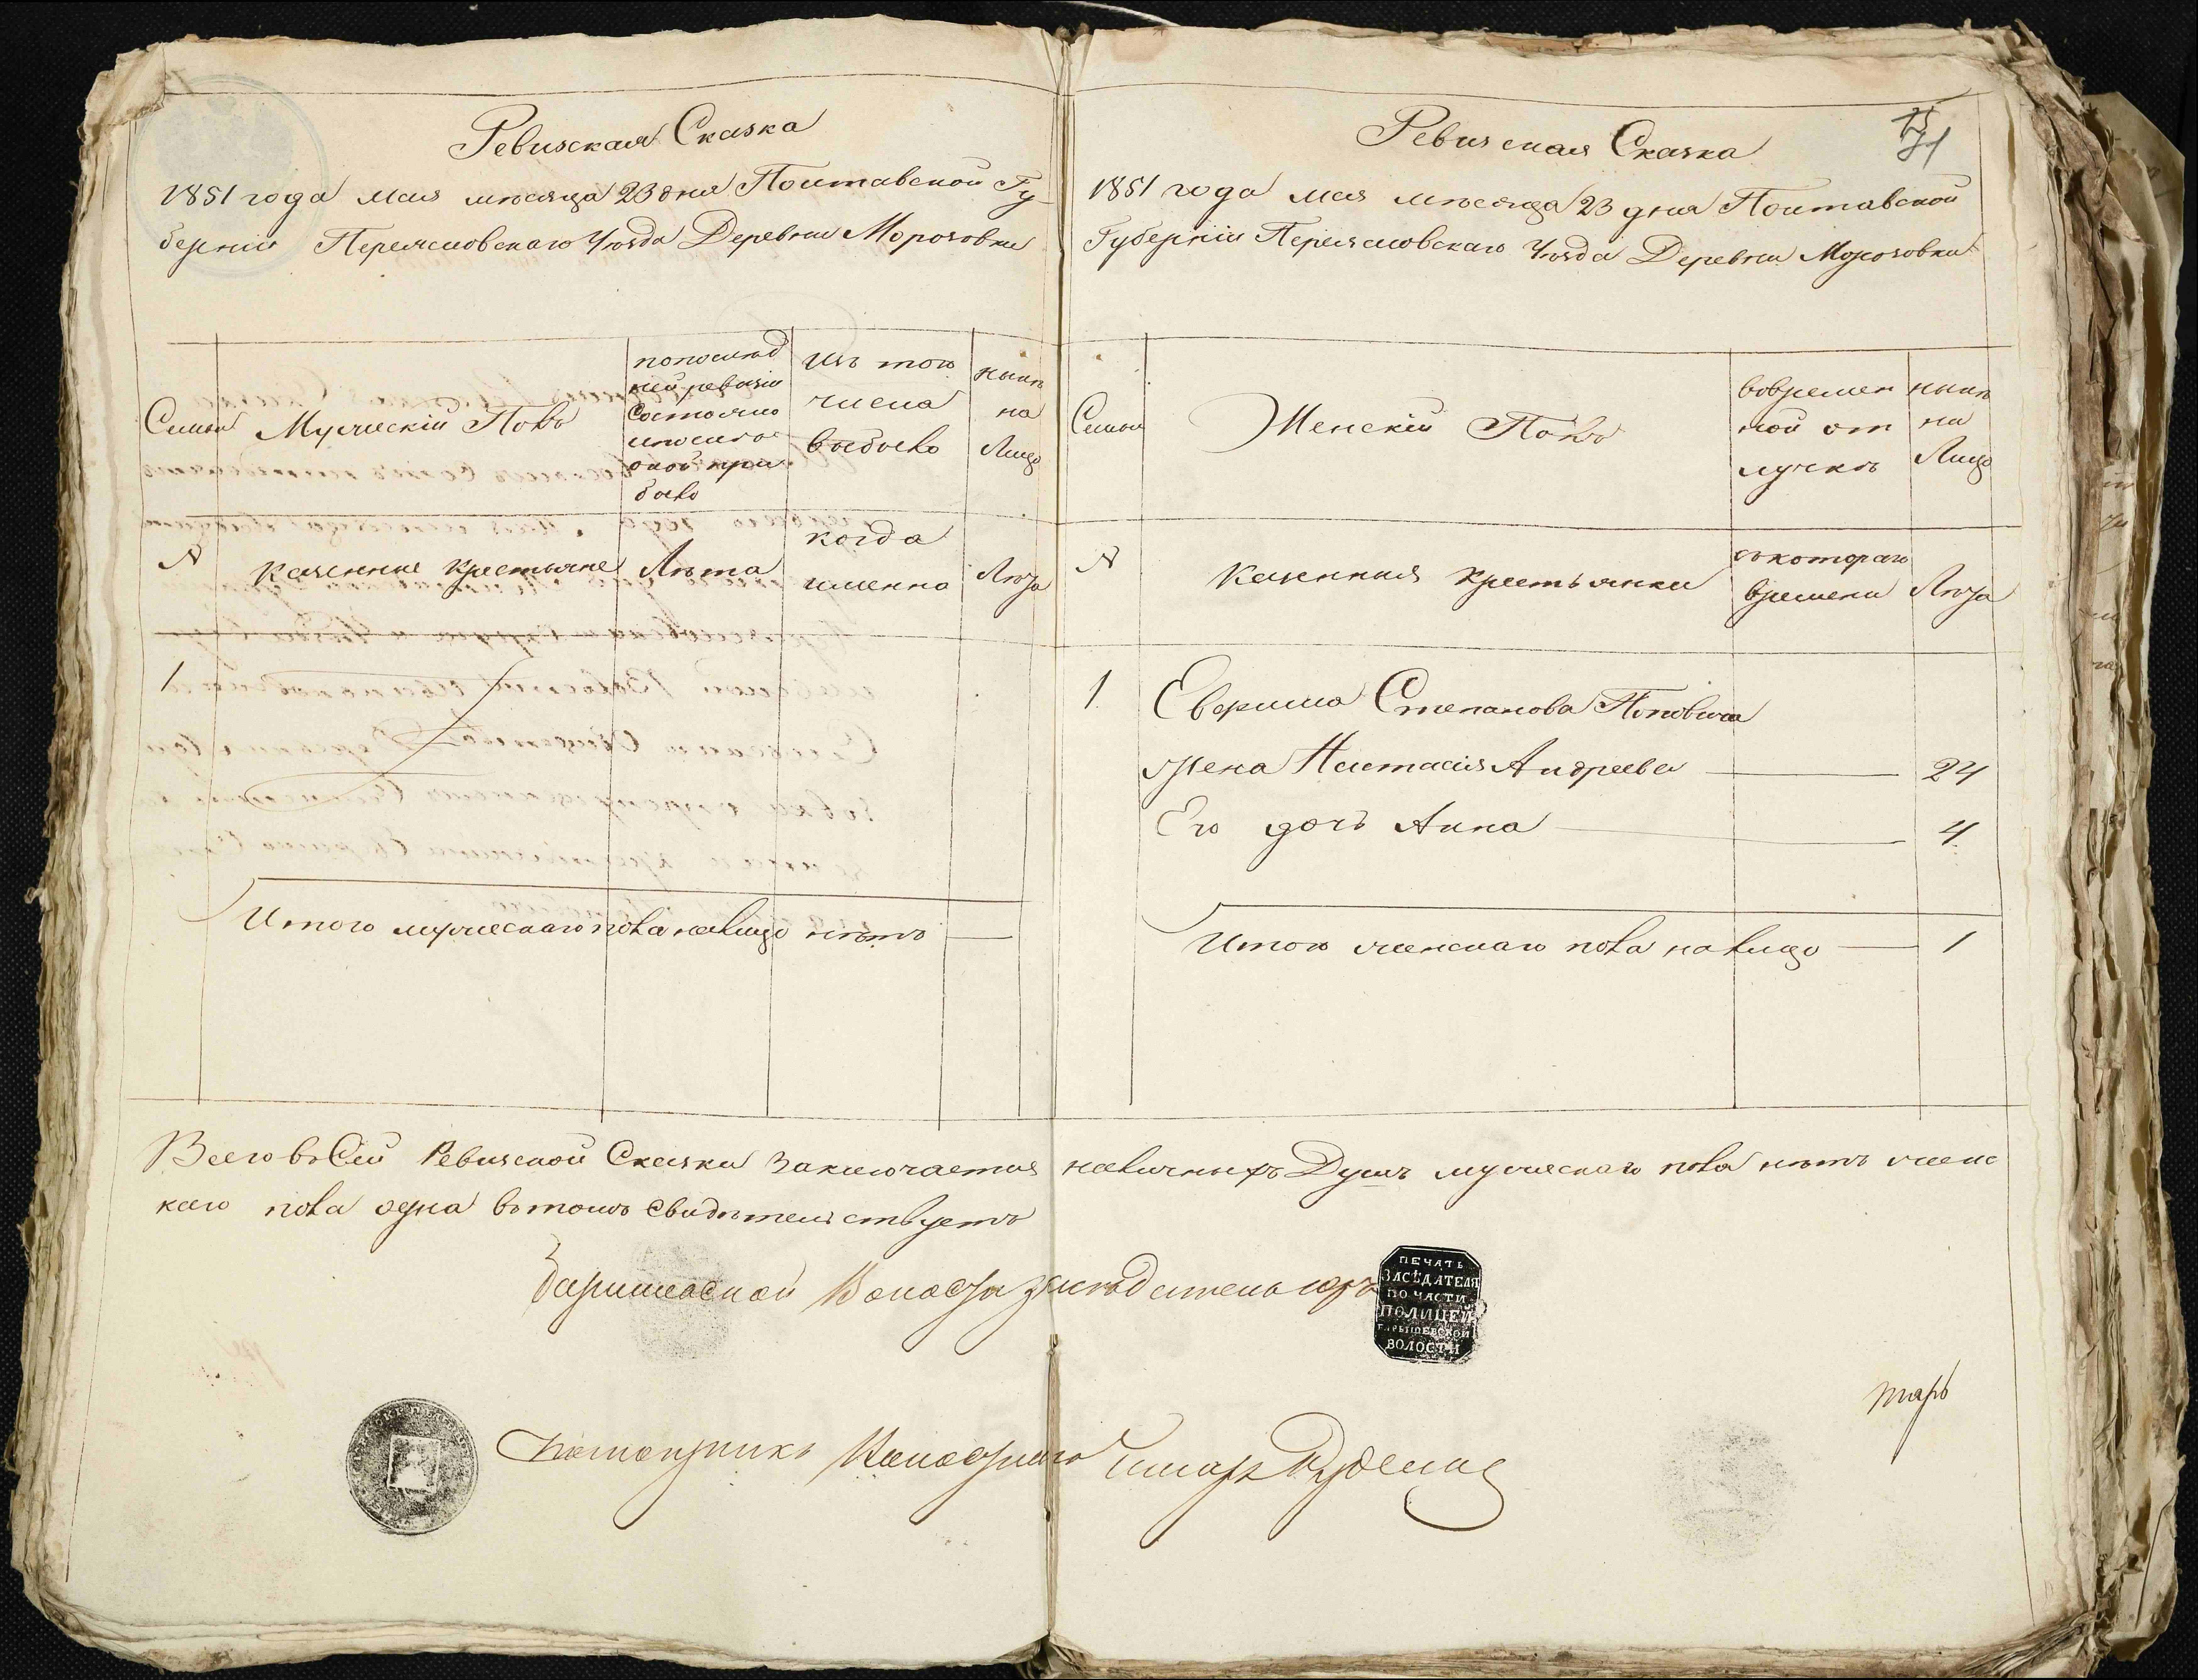 Ревизская Сказка
1851 года мая мѣсяца 23 дня Полтавской Гу
берніи Переясловскаго Уѣзда Деревни Морозовки
Семьи
Мужескій Полъ
по послѣд
ней ревизіи
Состояло
и послѣ
оной при
было
Изъ того
числа
выбыло
нынѣ
на
Лицо
№
Казенные Крестьяне
Лѣта
когда
именно
Лѣта
1
Итого мужескаго пола налицо нѣтъ
Ревизская Сказка
71
1851 года мая мѣсяца 23 дня Полтавской
Губерніи Переясловскаго Уѣзда Деревни Морозовки
Семьи
Женскій Полъ
во времен
ной от
лучкѣ
нынѣ
на
Лицо
№
Казенныя Крестьянки
съ котораго
времени
Лѣта
1
Евфима Степанова Поповича
жена Настасія Андреева 24
Его дочь Анна 4
Итого женскаго пола налицо 1
Всего въ Сей Ревизской Сказки Заключается наличныхъ Душъ мужескаго пола нѣтъ женс
каго пола одна въ томъ Свидѣтельствуетъ
Баришовской
ПЕЧАТЬ
ЗАСѢДАТЕЛЯ
ПО ЧАСТИ
ПОЛИЦЕЙ
БАРЫШЕВСКОЙ
ВОЛОСТИ